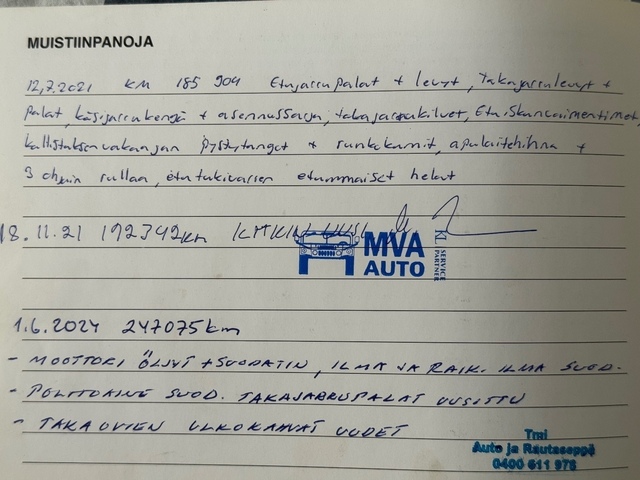 MUISTIINPANOJA
12.7.2021 KM 185 904 Etujarrupalat + levyt, Takajarrulevyt +
palat, käsijarrukengä + asennussarja, takajarrukilvet, Etuiskunvaimentimet,
kallistuksenvakaajan pystytangot + runkokumit, apulaitehihna +
3 ohjain rullaa, etutukivarren etummaiset helat
18.11.21 192342km
MVA
AUTO
KL SERVICE
PARTNER
1.6.2024 247075km
- MOOTTORI ÖLJYT + SUODATIN, ILMA JA RAIK. ILMA SUOD.
- POLTTOAINE SUOD. TAKAJARRUPALAT UUSITTU
- TAKAOVIEN ULKOKAHVAT UUDET
Tmi
Auto ja Rautaseppä
0400 611 978